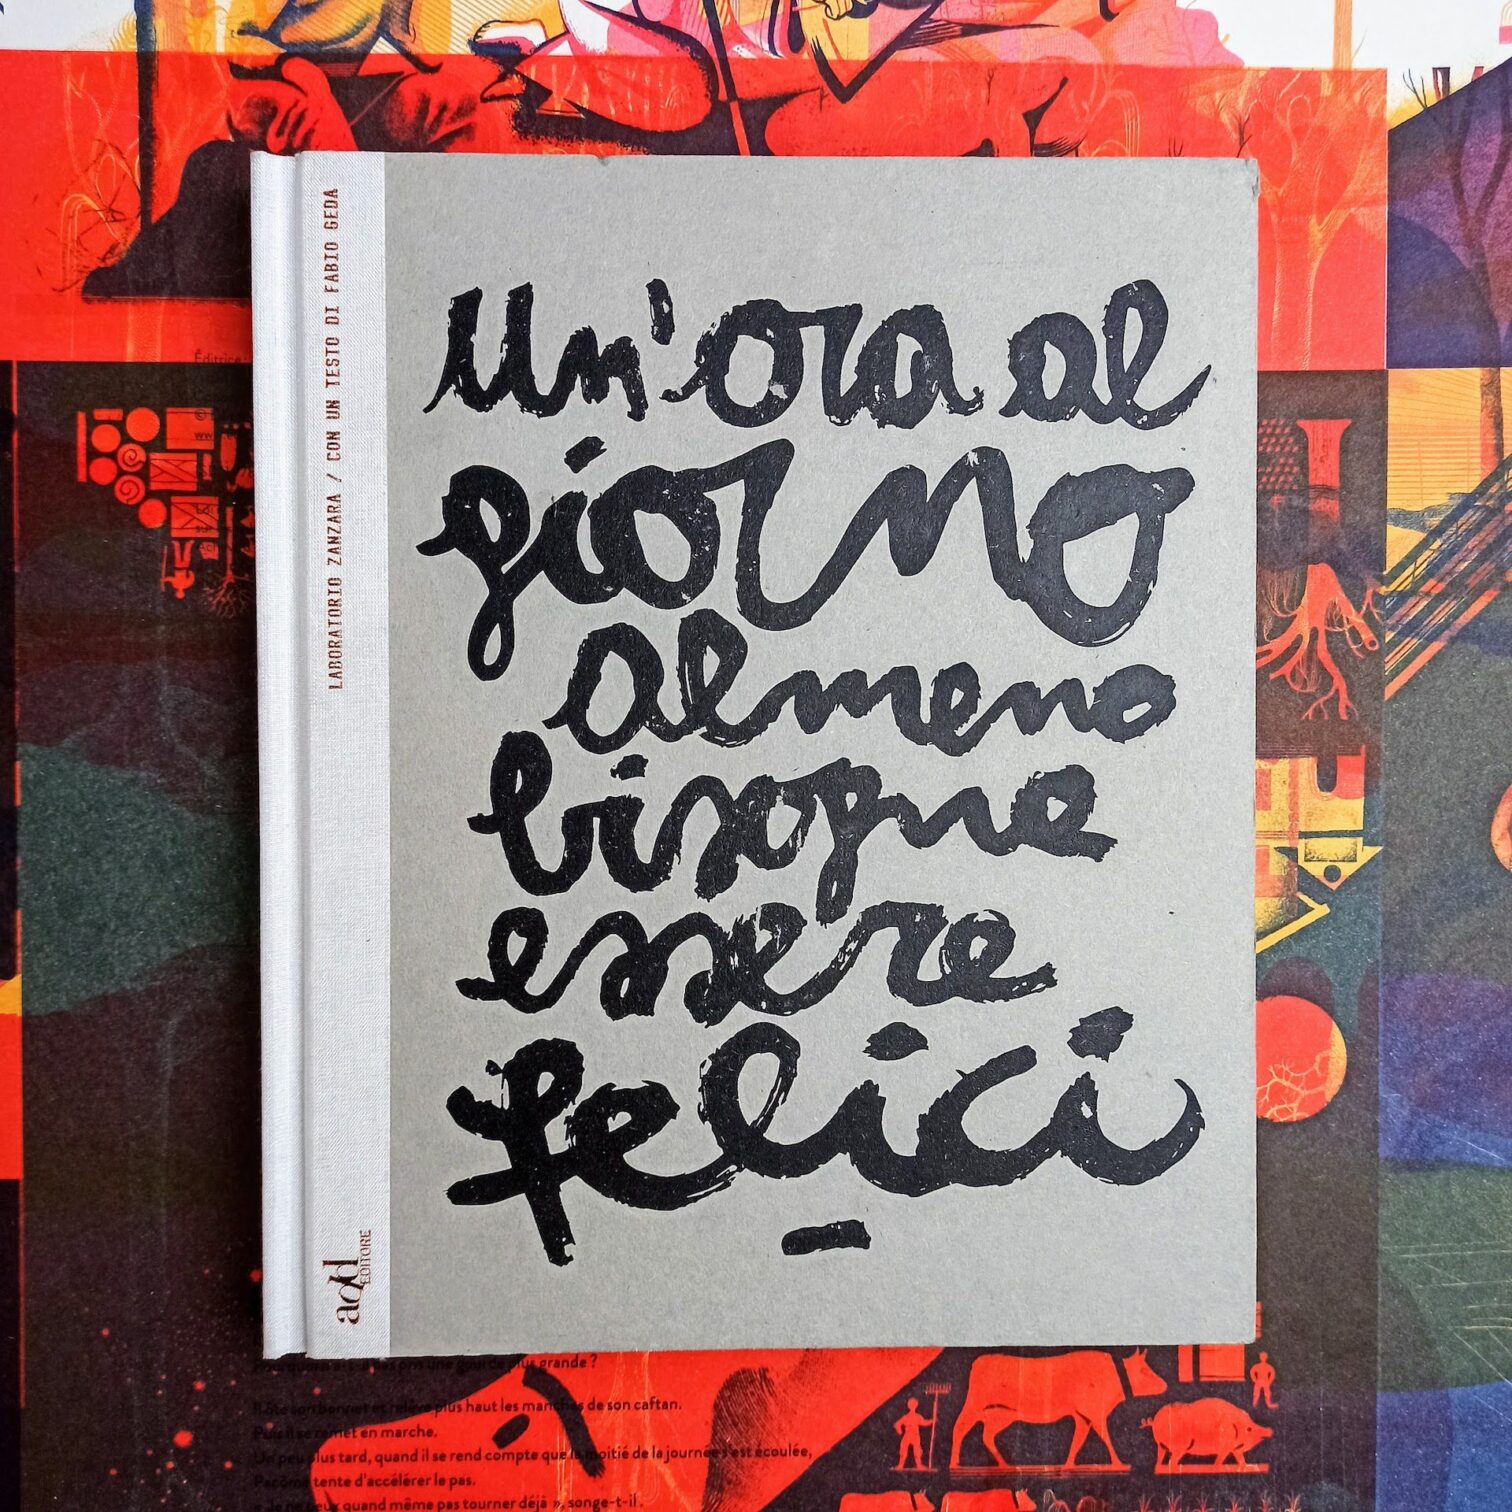 Éditrice
LABORATORIO ZANZARA / CON UN TESTO DI FABIO GEDA
Un'ora al
giorno
almeno
bisogne
essere
felici
add
EDITORE
plus grande ?
Il ôte son bonnet et relève plus haut les manches de son caftan.
Puis il se remet en marche.
Un peu plus tard, quand il se rend compte que la moitié de la journée s'est écoulée,
Pacôme tente d'accélérer le pas.
« Je ne peux quand même pas tourner déjà », songe-t-il.